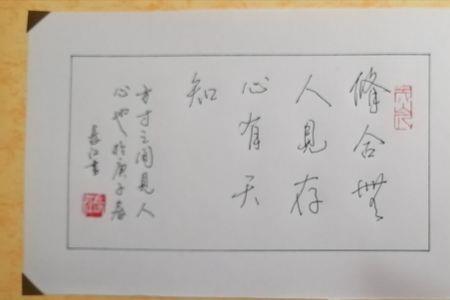 修合無
人見存
心有天
知
方寸之间見人
心也於庚子春
江书